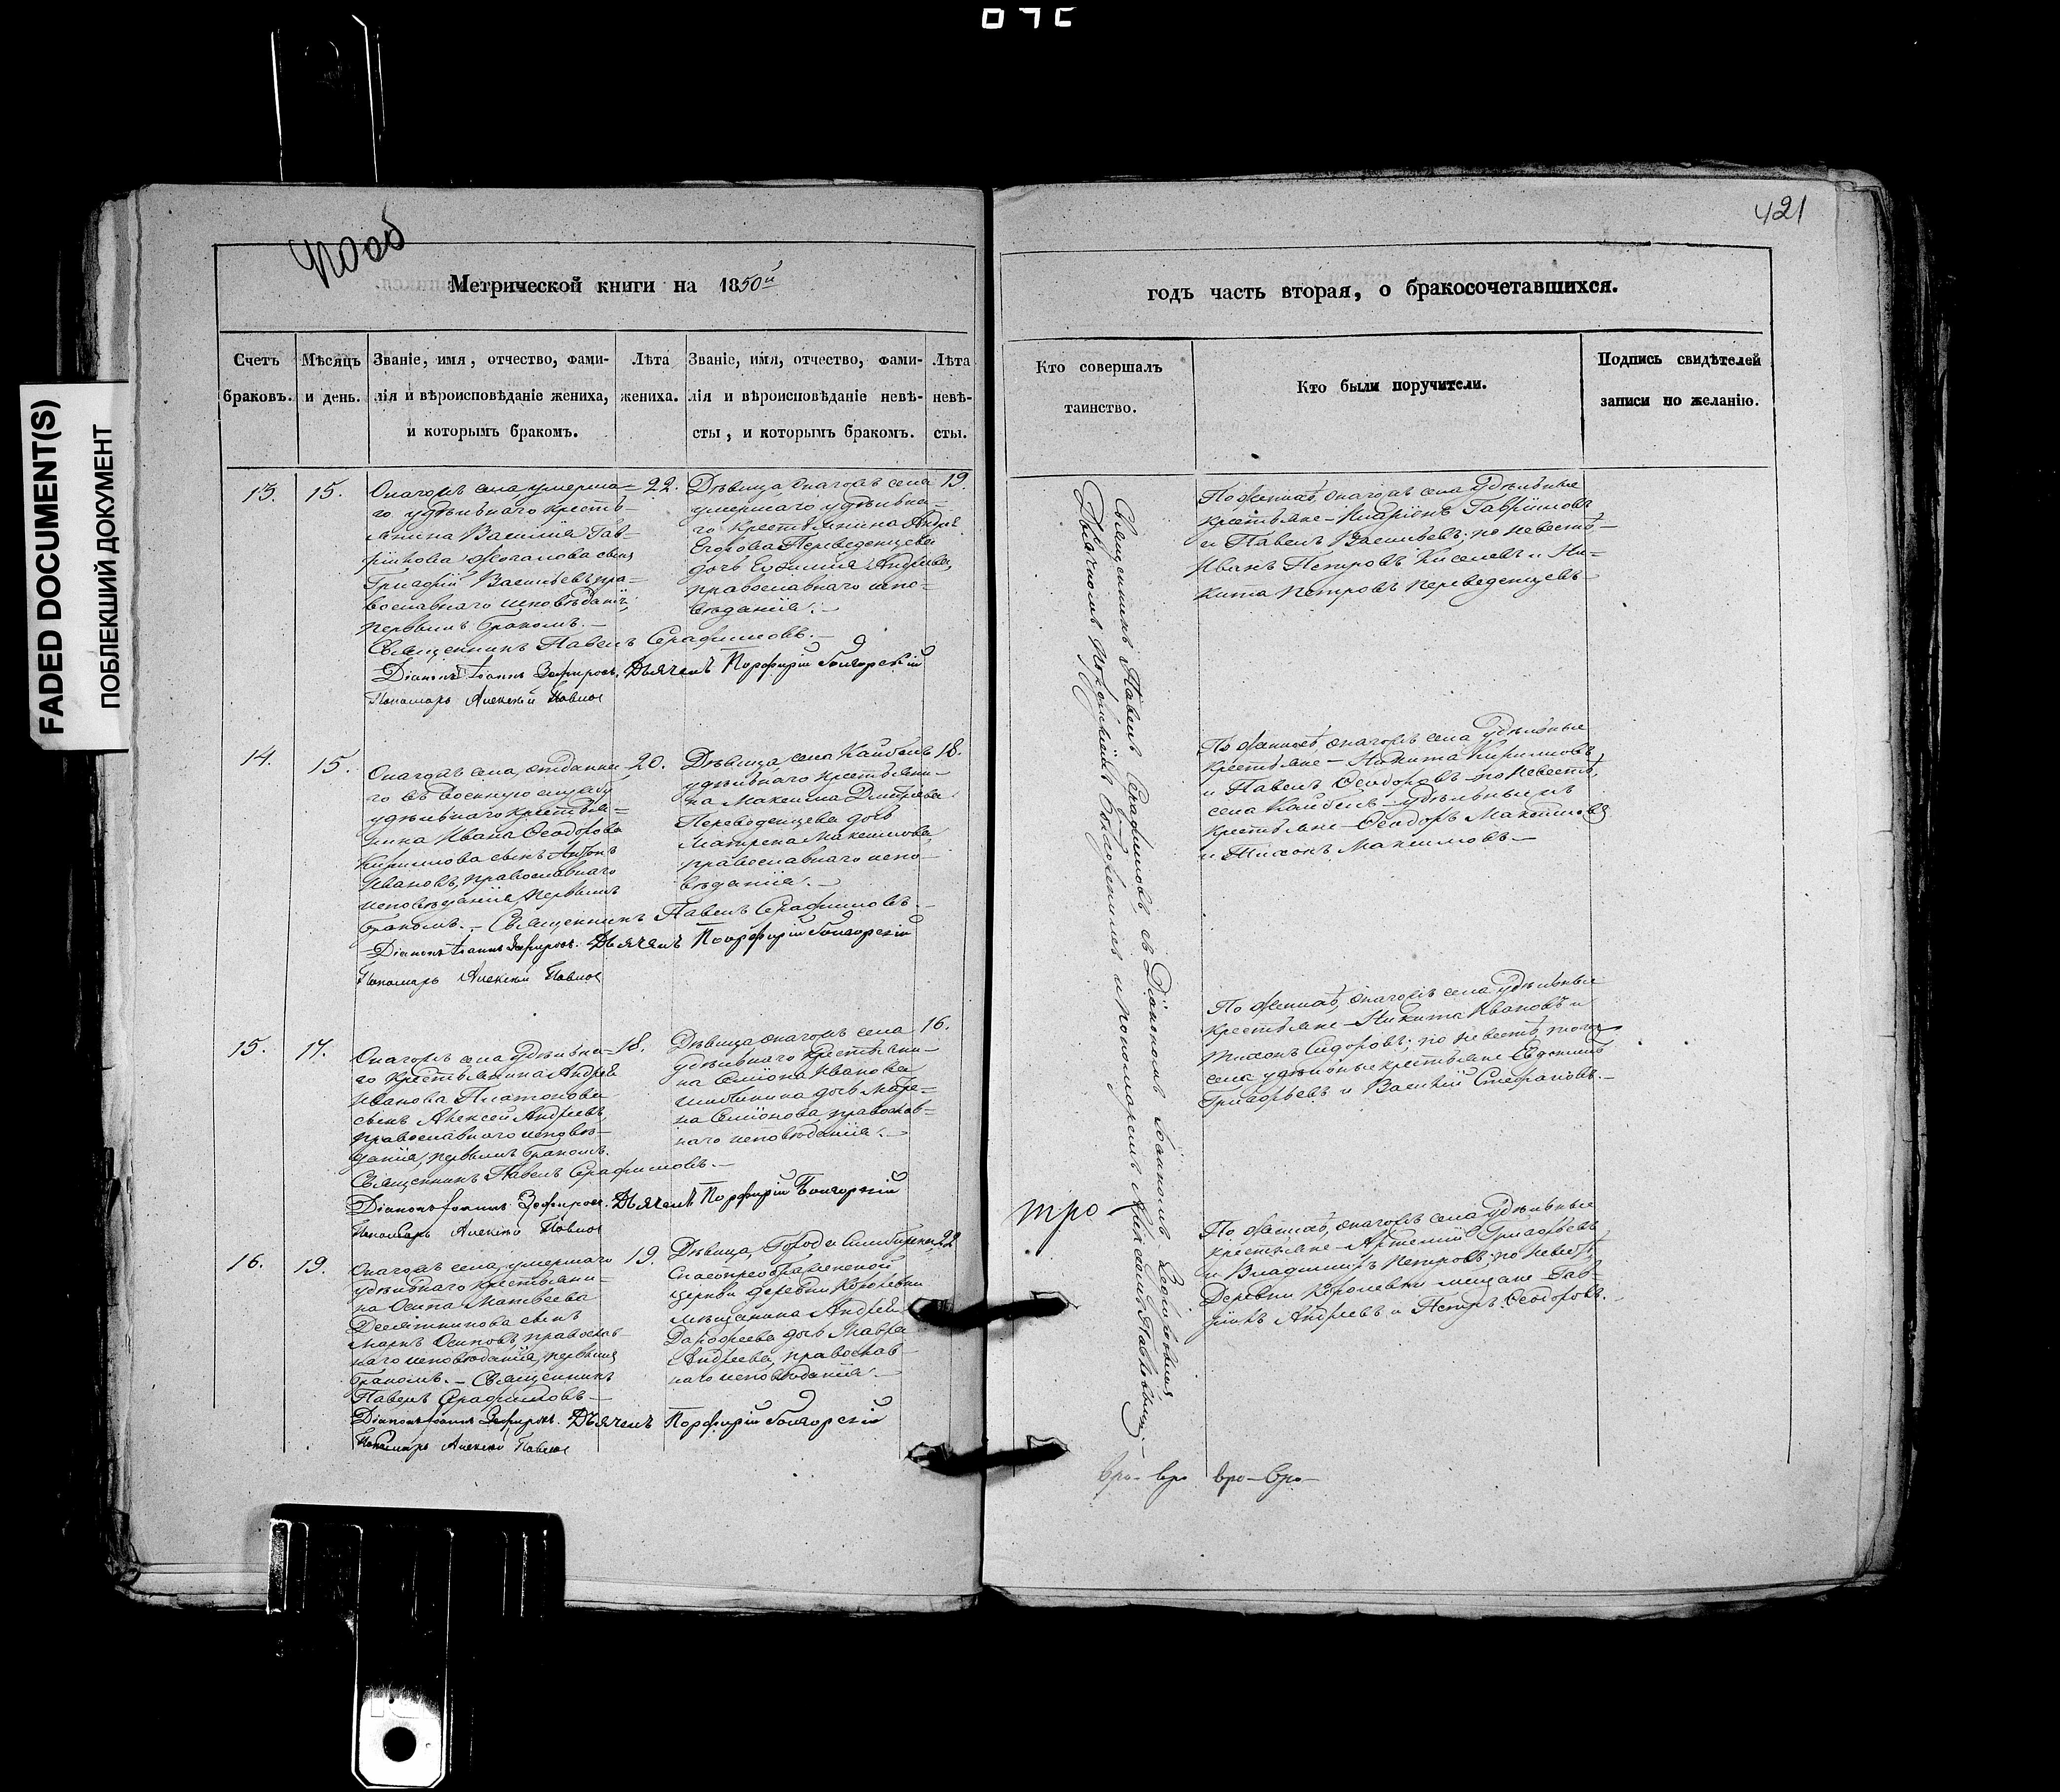 FADED DOCUMENT(S)
ПОБЛЕКШИЙ ДОКУМЕНТ
421
Метрической книги на 1850й
годъ часть вторая, о бракосочетавшихся.
Счетъ
браковъ.
Мѣсяцъ
и день.
Званіе, имя, отчество, фами-
лія и вѣроисповѣданіе жениха,
и которымъ бракомъ.
Лѣта
жениха.
Званіе, имя, отчество, фами-
лія и вѣроисповѣданіе невѣ-
сты, и которымъ бракомъ.
Лѣта
невѣ-
сты.
Кто совершалъ
таинство.
Кто были поручители.
Подпись свидѣтелей
записи по желанію.
13.
15.
Онагожъ села умерша-
го удѣльнаго кресть-
янина Василія Гав-
рилова сынъ
Васильевъ, пра-
вославнаго исповѣданія,
первымъ бракомъ.-
Священникъ Павелъ Серафимовъ.-
Діаконъ Іоаннъ Зефировъ. Дьячекъ Порфирій
Пономарь Алексѣй Павлов
22.
Дѣвица, онагожъ села
умершаго удѣльна-
го крестьянина Андрея
Егорова Переведенцева
дочь Андреева,
православнаго испо-
вѣданія.-
19.
По женихѣ, онагожъ села удѣльные
крестьяне - Иларіонъ Гавриловъ
и Павелъ Васильевъ; по невѣстѣ -
Иванъ Петровъ Киселевъ и Ни-
кита Петровъ Переведенцевъ
14.
15.
Онагожъ села, отданна-
го въ военную службу
удѣльнаго крестья-
нина Ивана Ѳеодорова
Кирилова сынъ Антонъ
Ивановъ, православнаго
исповѣданія, первымъ
бракомъ.- Священникъ Павелъ Серафимовъ.-
Діаконъ Іоаннъ Зефировъ. Дьячекъ Порфирій
Пономарь Алексѣй Павлов
20.
Дѣвица, села Каибелъ
удѣльнаго крестьяни-
на Максима Дмитріева
Переведенцева дочь
Матрена Максимова,
православнаго испо-
вѣданія.-
18.
По женихѣ, онагожъ села удѣльные
крестьяне - Никита Кириловъ
и Павелъ Ѳеодоровъ - по невѣстѣ,
села Каибелъ - удѣльные
крестьяне - Ѳеодоръ Максимовъ
и Тихонъ Максимовъ -
15.
17.
Онагожъ села удѣльна-
го крестьянина Андрея
Иванова Платонова
сынъ Алексей Андреевъ,
православнаго исповѣ-
данія, первымъ бракомъ.
Священникъ Павелъ Серафимовъ.-
Діаконъ Іоаннъ Зефировъ. Дьячекъ Порфирій
Пономарь Алексѣй Павлов
18.
Дѣвица онагожъ села
удѣльнаго крестьяни-
на Семіона Иванова
дочь Мари-
на Семіонова, православ-
наго исповѣданія.-
16.
По женихѣ, онагожъ села удѣльные
крестьяне - Никита Ивановъ и
Тихонъ Сидоровъ; по невѣстѣ, тогожъ
села удѣльные крестьяне Евдокимъ
Григорьевъ и Василій Стефановъ.-
16.
19.
Онагожъ села, умершаго
удѣльнаго крестьяни-
на Осипа Матвеева
Десятникова сынъ
Маркъ Осиповъ, православ-
наго исповѣданія, первымъ
бракомъ.- Священникъ
Павелъ Серафимовъ -
Діаконъ Іоаннъ Зефировъ. Дьячекъ Порфирій
Пономарь Алексѣй Павлов
19.
Дѣвица, Города Симбирска
Спасопреображенской
церкви деревни Королевки
мѣщанина Андрея
дочь Мавра
Андреева, православ-
наго исповѣданія.-
22
По женихѣ, онагожъ села удѣльные
крестьяне - Артемій Григорьевъ
и Владимиръ Петровъ; по невѣстѣ,
Деревни Королевки мещане - Гав-
рилъ Андреевъ и Петръ Ѳеодоровъ.
Священникъ Павелъ Серафимовъ съ Діакономъ Іоанномъ Зефировымъ
Дьячкомъ Порфиріемъ и пономаремъ Алексеемъ Павловымъ.-
тро